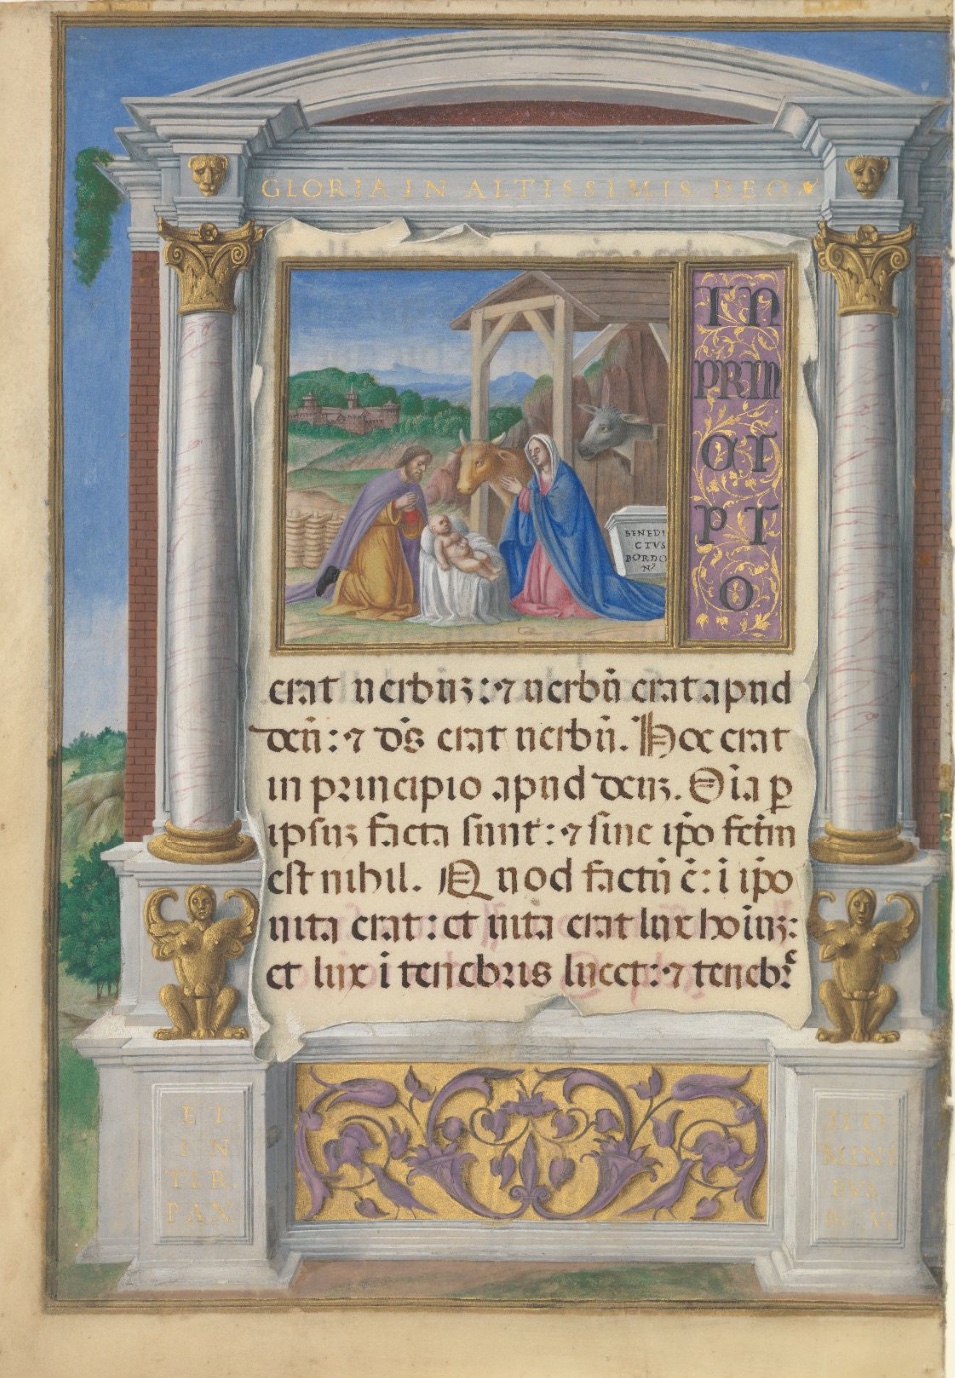 GLORIA IN ALTISSIMIS DEO
IN
PRIN
CI
PI
O
BENEDI
CTVS
BORDO
Nˢ
erat uerbuꝫ: ⁊ uerbū erat apud
deū: ⁊ dꝰs erat uerbū. Hoc erat
in principio apud deuꝫ. Oīa ꝑ
ipsuꝫ facta sunt: ⁊ sine ip̄o fctm̄
est nihil. Quod factū ē: ī ip̄o
uita erat: et uita erat lux hoīuꝫ:
et lux ī tenebris lucet: ⁊ tenebꝛ̄
ET
IN
TER
PAX
HO
MINI
BVS